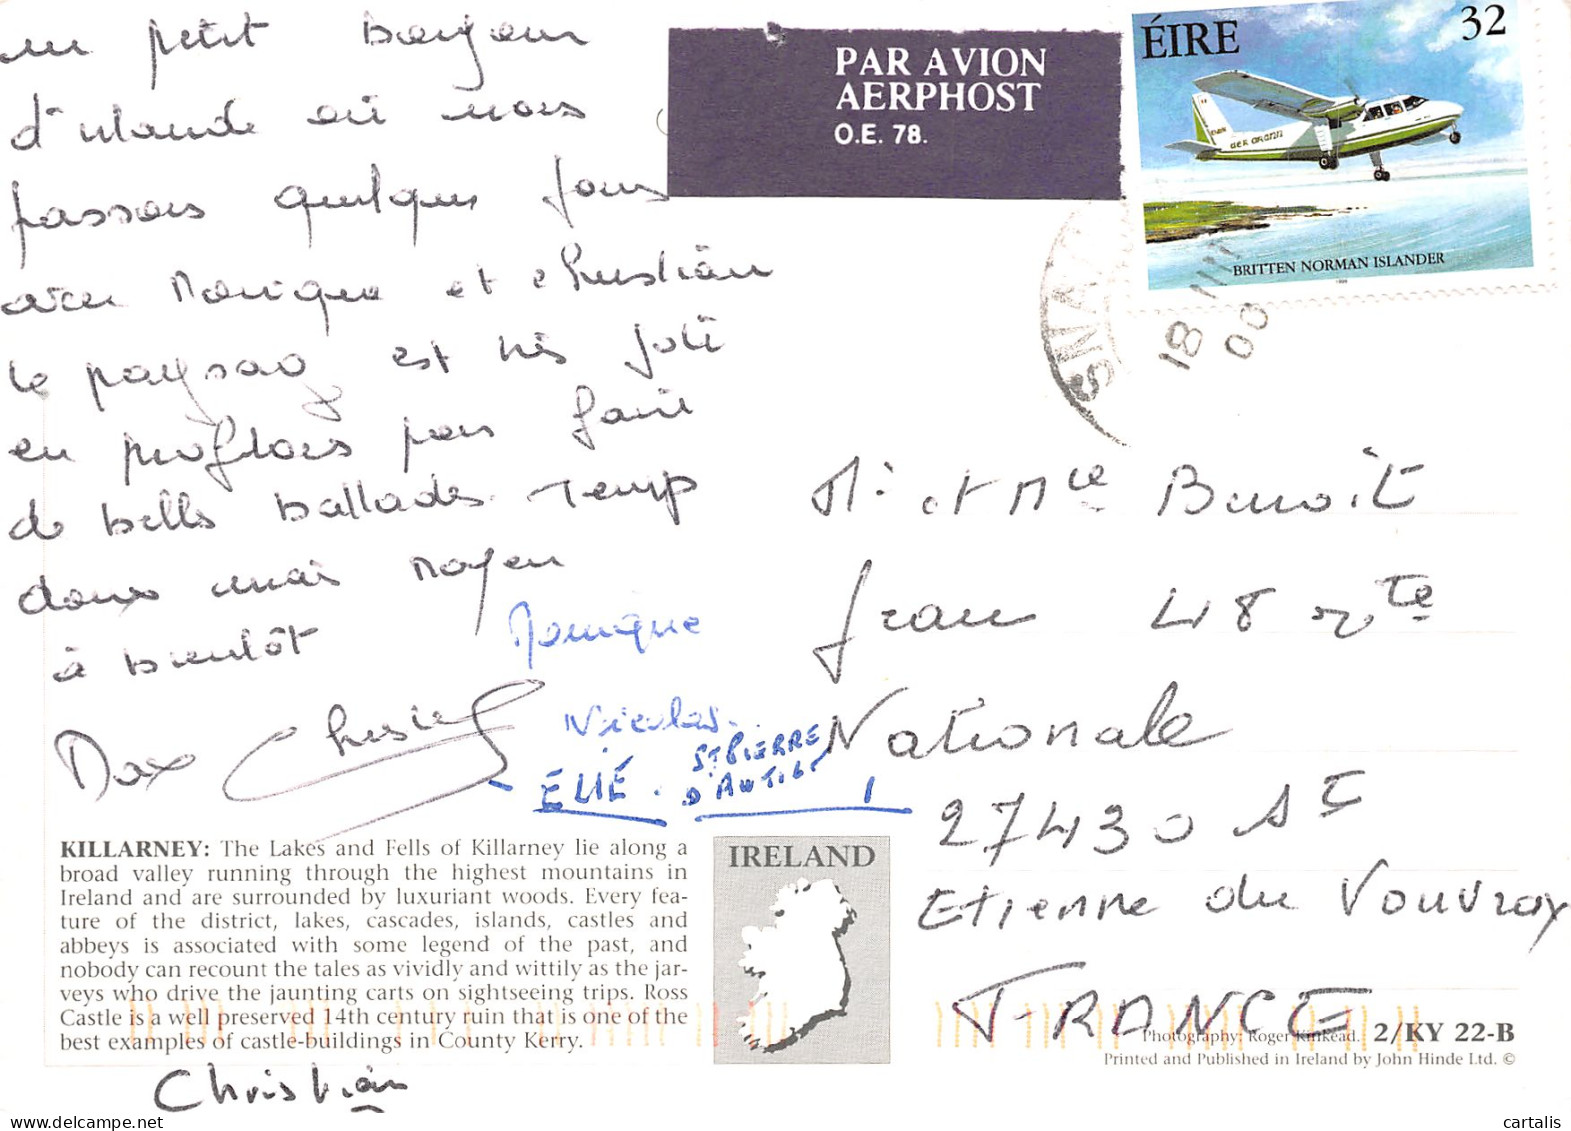 un petit bonjour
d'irlande où nous
passons quelques jours
avec Monique et christian
le paysag est très joli
en profitons pour faire
de bells ballades. Temps
doux mais moyen
à bientôt
Monique
Max
Nicolas.
ELIÉ.
ST PIERRE
D'AUTILS
KILLARNEY: The Lakes and Fells of Killarney lie along a
broad valley running through the highest mountains in
Ireland and are surrounded by luxuriant woods. Every fea-
ture of the district, lakes, cascades, islands, castles and
abbeys is associated with some legend of the past, and
nobody can recount the tales as vividly and wittily as the jar-
veys who drive the jaunting carts on sightseeing trips. Ross
Castle is a well preserved 14th century ruin that is one of the
best examples of castle-buildings in County Kerry.
Christian
IRELAND
PAR AVION
AERPHOST
O.E. 78.
ÉIRE 32
aer arann
BRITTEN NORMAN ISLANDER
18 III
00
M. et Mme Benoit
Jean 48 rte
Nationale
27430 St
Etienne du Vouvray
FRANCE
Photography: Roger Kinkead. 2/KY 22-B
Printed and Published in Ireland by John Hinde Ltd. ©
cartalis
delcampe.net